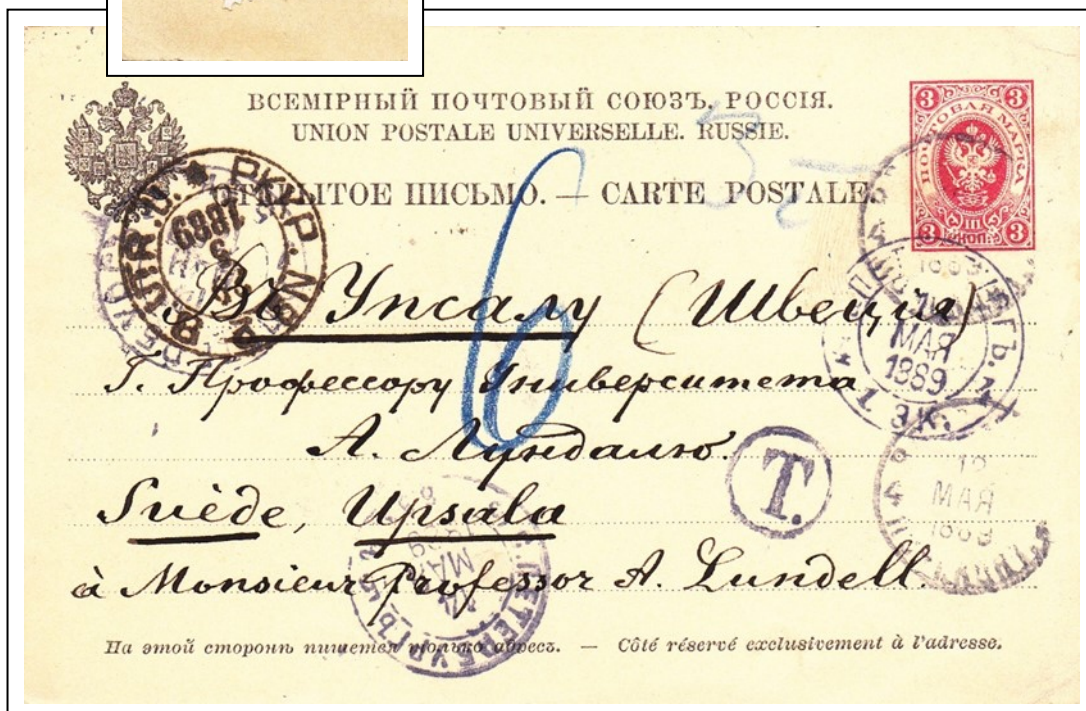 ВСЕМІРНЫЙ ПОЧТОВЫЙ СОЮЗЪ. РОССІЯ.
UNION POSTALE UNIVERSELLE. RUSSIE.
ОТКРЫТОЕ ПИСЬМО. — CARTE POSTALE.
3 ПОЧТОВАЯ МАРКА 3
3 III КОП. 3
PKXP. № 2 B. UTR. U.
1889
6
Въ Упсалу (Швеція)
Г. Профессору Университета
А. Лундалю.
Suède, Upsala
à Monsieur Professor A. Lundell.
МАЯ
1889
1 ЭК.
Т.
4
МАЯ
С. ПЕТЕРБУРГЪ
МАЯ
На этой сторонѣ пишется только адресъ. — Côté réservé exclusivement à l'adresse.